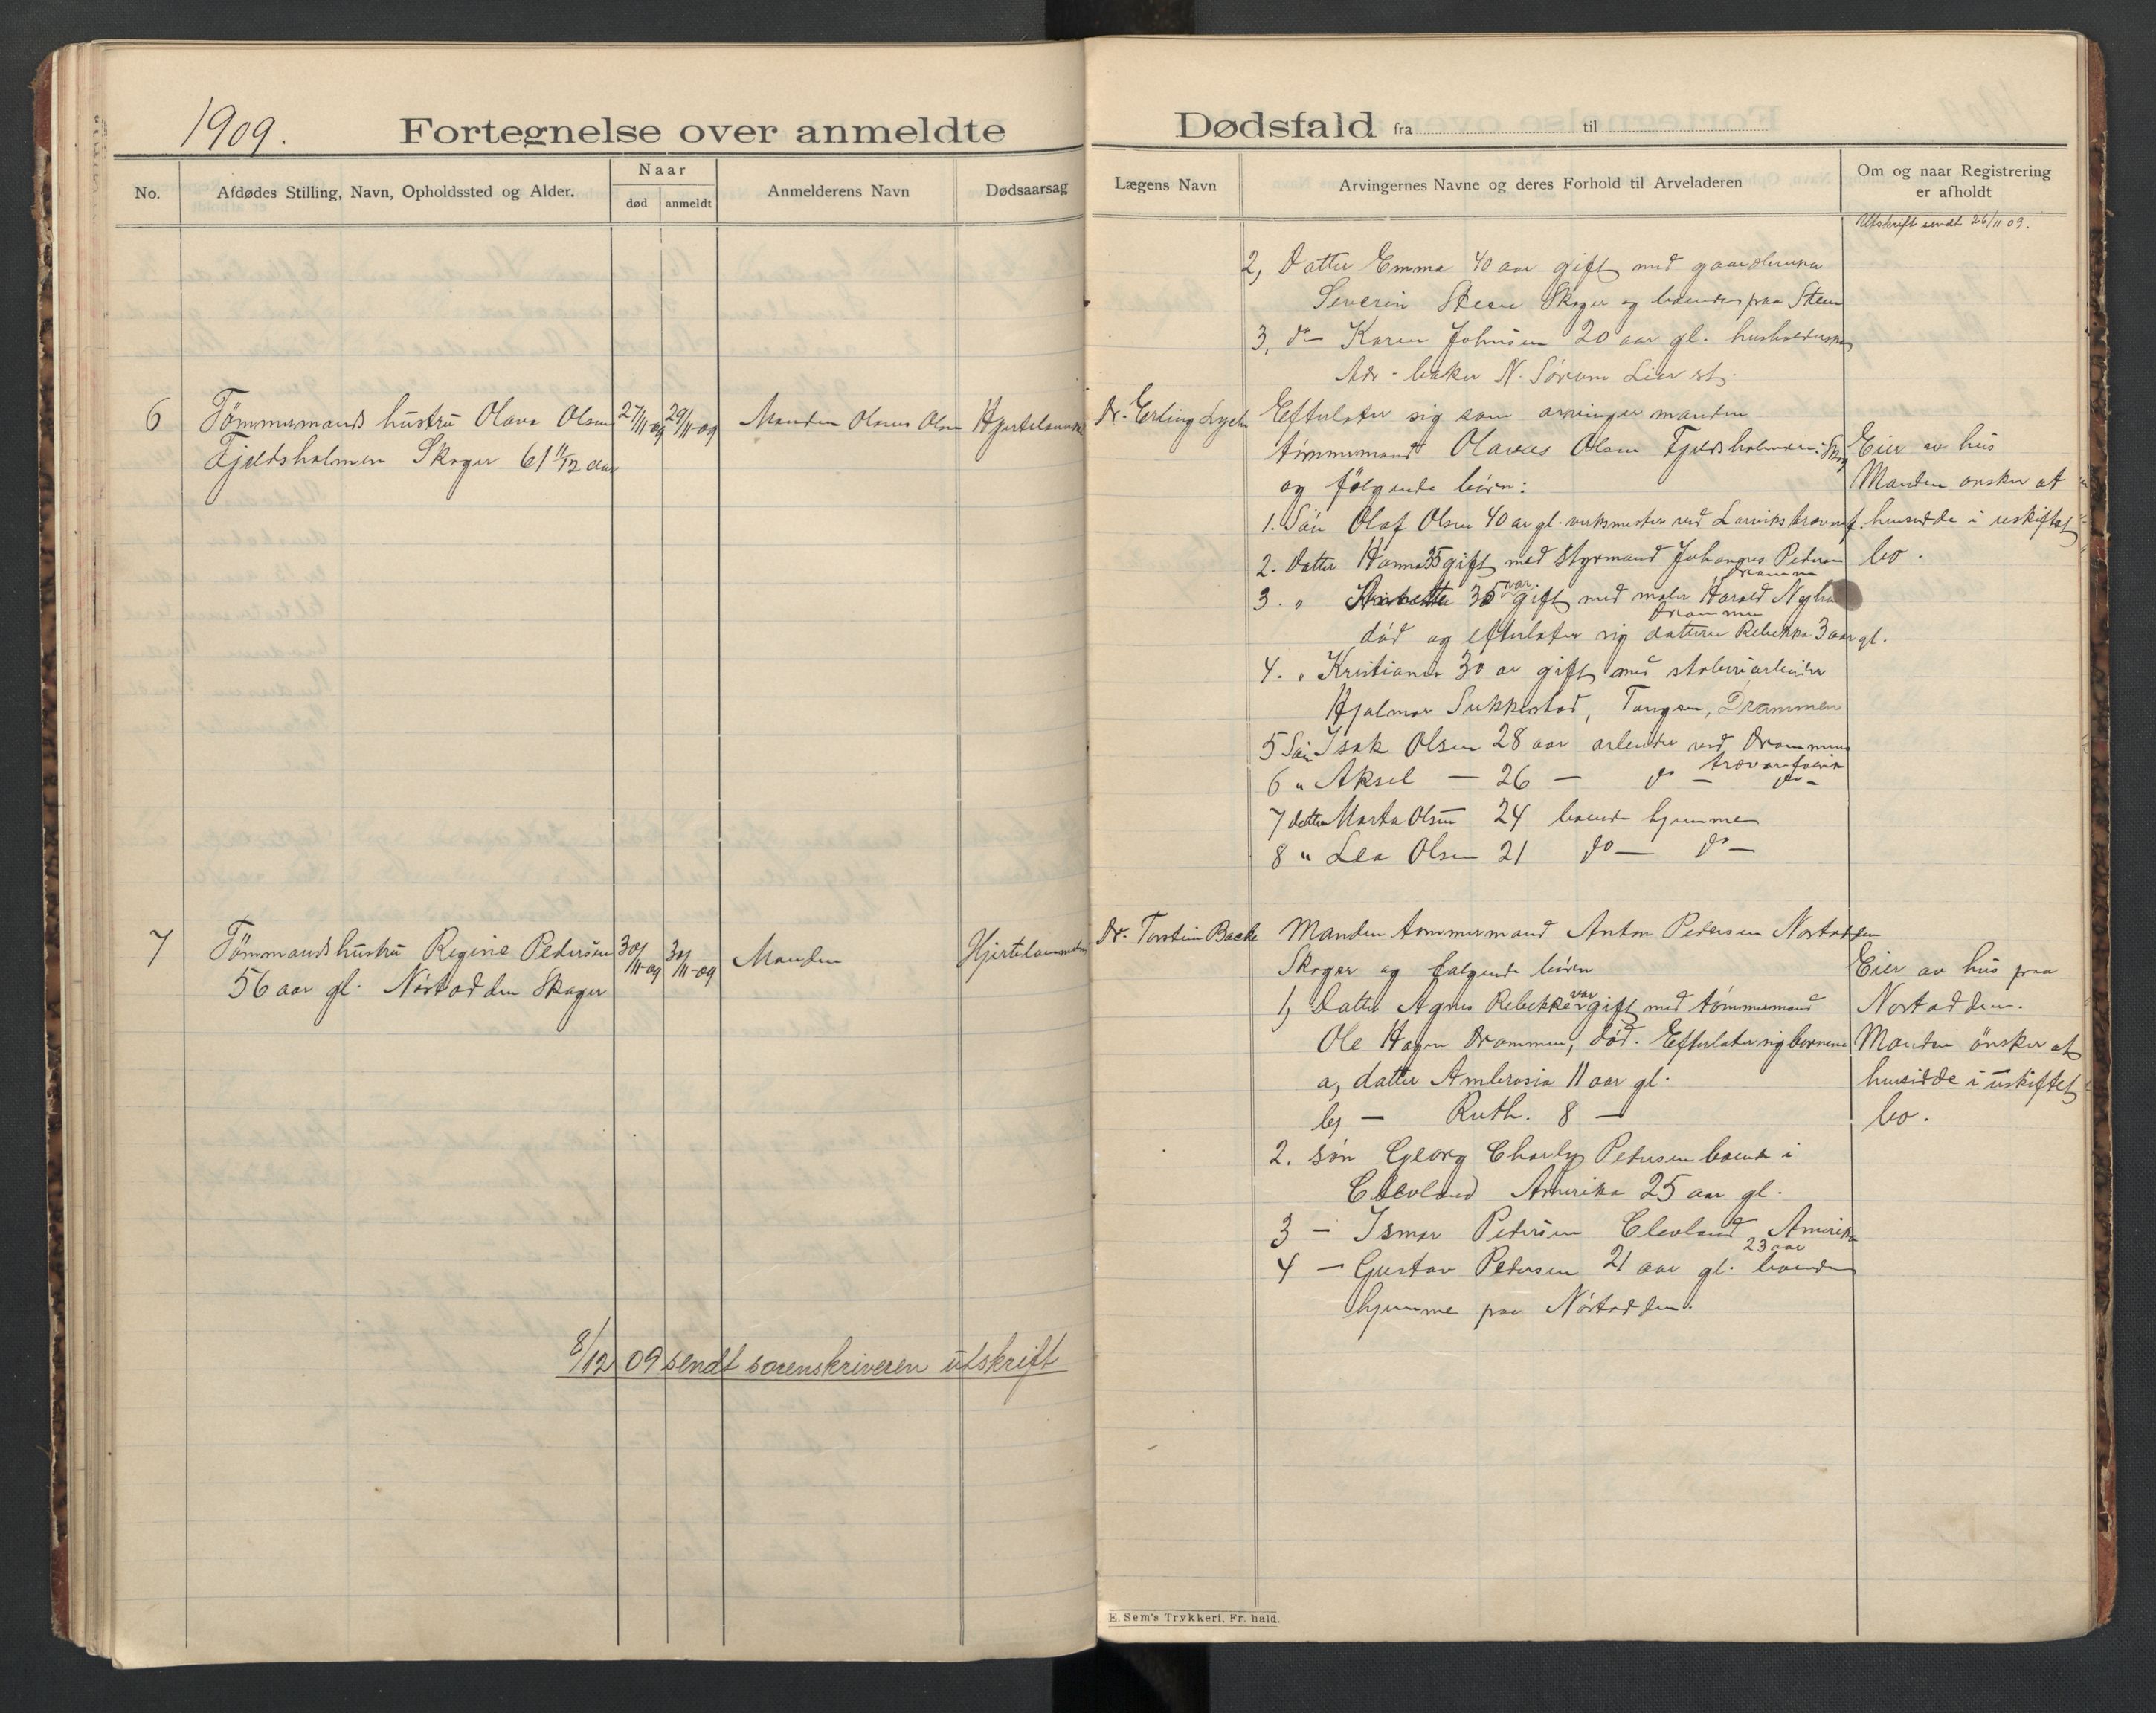 1909.
Fortegnelse over anmeldte
No.
Afdødes Stilling, Navn, Opholdssted og Alder.
Naar
død
anmeldt
Anmelderens Navn
Dødsaarsag
6
Tömmermands hustru Olava Olsen
Fjeldsholmen Skoger 61 11/12 aar
27/11-09
29/11-09
Manden Olaves Olsen
Hjertelammelse
7
Tömmandshustru Regine Pedersen
56 aar gl. Nöstodden Skoger
30/11-09
30/11-09
Manden
Hjertelammelse
8/12 09 sendt sorenskriveren utskrift
Dødsfald fra til
Lægens Navn
Arvingernes Navne og deres Forhold til Arveladeren
Om og naar Registrering
er afholdt
Utskrift sendt 26/11 09.
2, Datter Emma 40 aar gift med gaardbruker
Severin Steen Skoger og boende paa Steen
3, do Karen Johnsen 20 aar gl. husholderske
Adr - baker N. Sørum Lier st.
Dr. Erling Lyche
Efterlater sig som arvinger manden
tømmermand Olaves Olsen Fjeldsholmen i Skog
og følgende børn:
1. Sön Olaf Olsen 40 ar gl. verksmester ved Larviks trævaref.
2. Datter Hanna 35 gift med styrmand Johannes Pedersen
Drammen
3. " 35 var gift med maler Harald
Drammen
død og efterlater sig datteren Rebekka 3 aar gl.
4. " Kristiane 30 ar gift med stoleriarbeider
Hjalmar Sukkestad, Tangen, Drammen
5 Sön Isak Olsen 28 aar arbeider ved Drammens
trævarefabrik
6 " Aksel — 26 — do — do —
7 datter Marta Olsen 24 boende hjemme
8 " Lea Olsen 21 do — do —
Eier av hus
Manden ønsker at
hensidde i uskiftet
bo.
Dr. Torstein Backe
Manden tømmermand Anton Pedersen Nøstodden
Skoger og følgende børn
1, Datter Agnes Rebekka var gift med tømmermand
Ole Hagen Drammen, død. Efterlater sig børnene
a, datter Ambrosia 11 aar gl.
b, — Ruth. 8 —
2. søn Georg Charly Pedersen boende i
Clevland Amerika 25 aar gl.
3 — Ismar Pedersen Clevland Amerika
23 aar
4 — Gustav Pedersen 21 aar gl. boende
hjemme paa Nöstodden.
Eier av hus paa
Nøstodden.
Manden önsker at
hensidde i uskiftet
bo.
E. Sem's Trykkeri, Fr. hald.